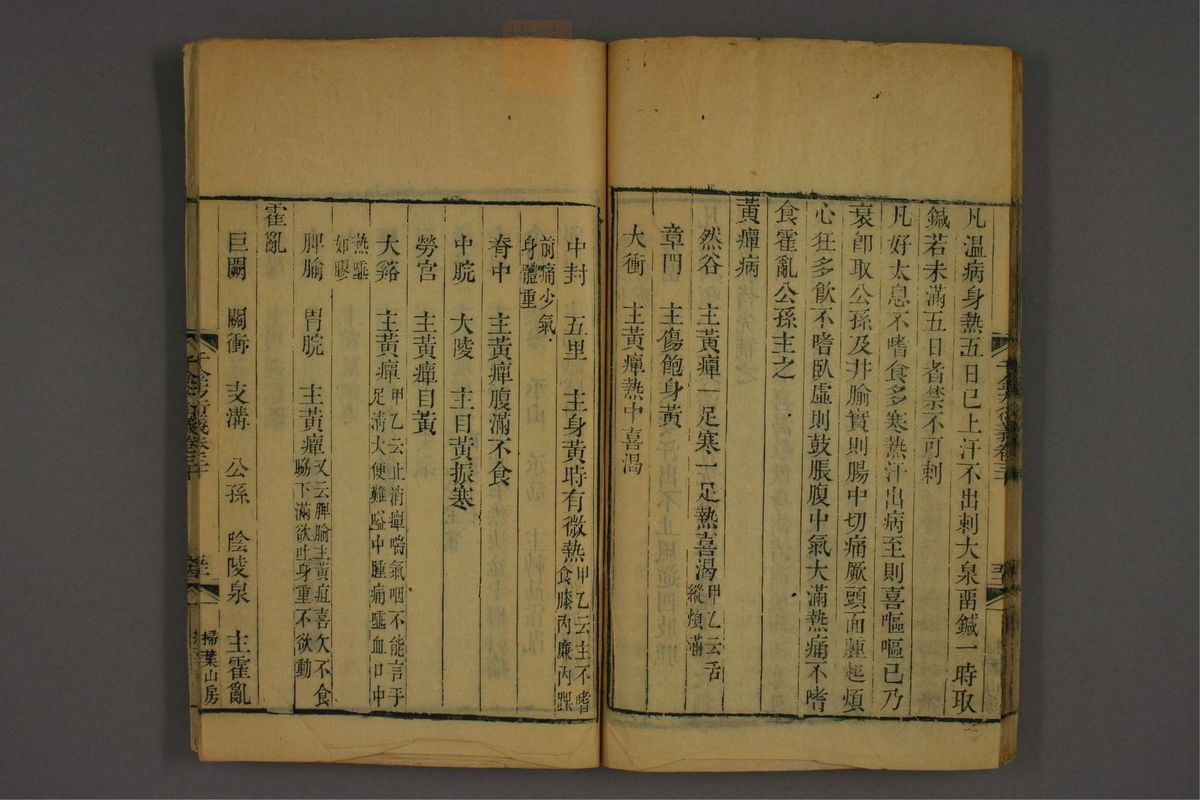 凡溫病身熱五日已上汗不出刺大泉畱鍼一時取
鍼若未滿五日者禁不可刺
凡好太息不嗜食多寒熱汗出病至則喜嘔嘔已乃
衰卽取公孫及井腧實則腸中切痛厥頭面腫起煩
心狂多飮不嗜臥虛則鼓脹腹中氣大滿熱痛不嗜
食霍亂公孫主之
黃癉病
然谷 主黃癉一足寒一足熱喜渴甲乙云舌
縱煩滿
章門 主傷飽身黃
大衝 主黃癉熱中喜渴
中封 五里 主身黃時有微熱甲乙云主不嗜
食膝內廉內踝
前痛少氣
身體重
脊中 主黃癉腹滿不食
中脘 大陵 主目黃振寒
勞宮 主黃癉目黃
大谿 主黃癉甲乙云止消癉喘氣咽不能言手
足淸大便難嗌中腫痛唾血口中
熱唾
如膠
脾腧 胃脘 主黃癉又云脾腧主黃疸喜欠不食
脇下滿欲吐身重不欲動
霍亂
巨闕 關衝 支溝 公孫 陰陵泉 主霍亂
千金方衍義卷三十
掃葉山房